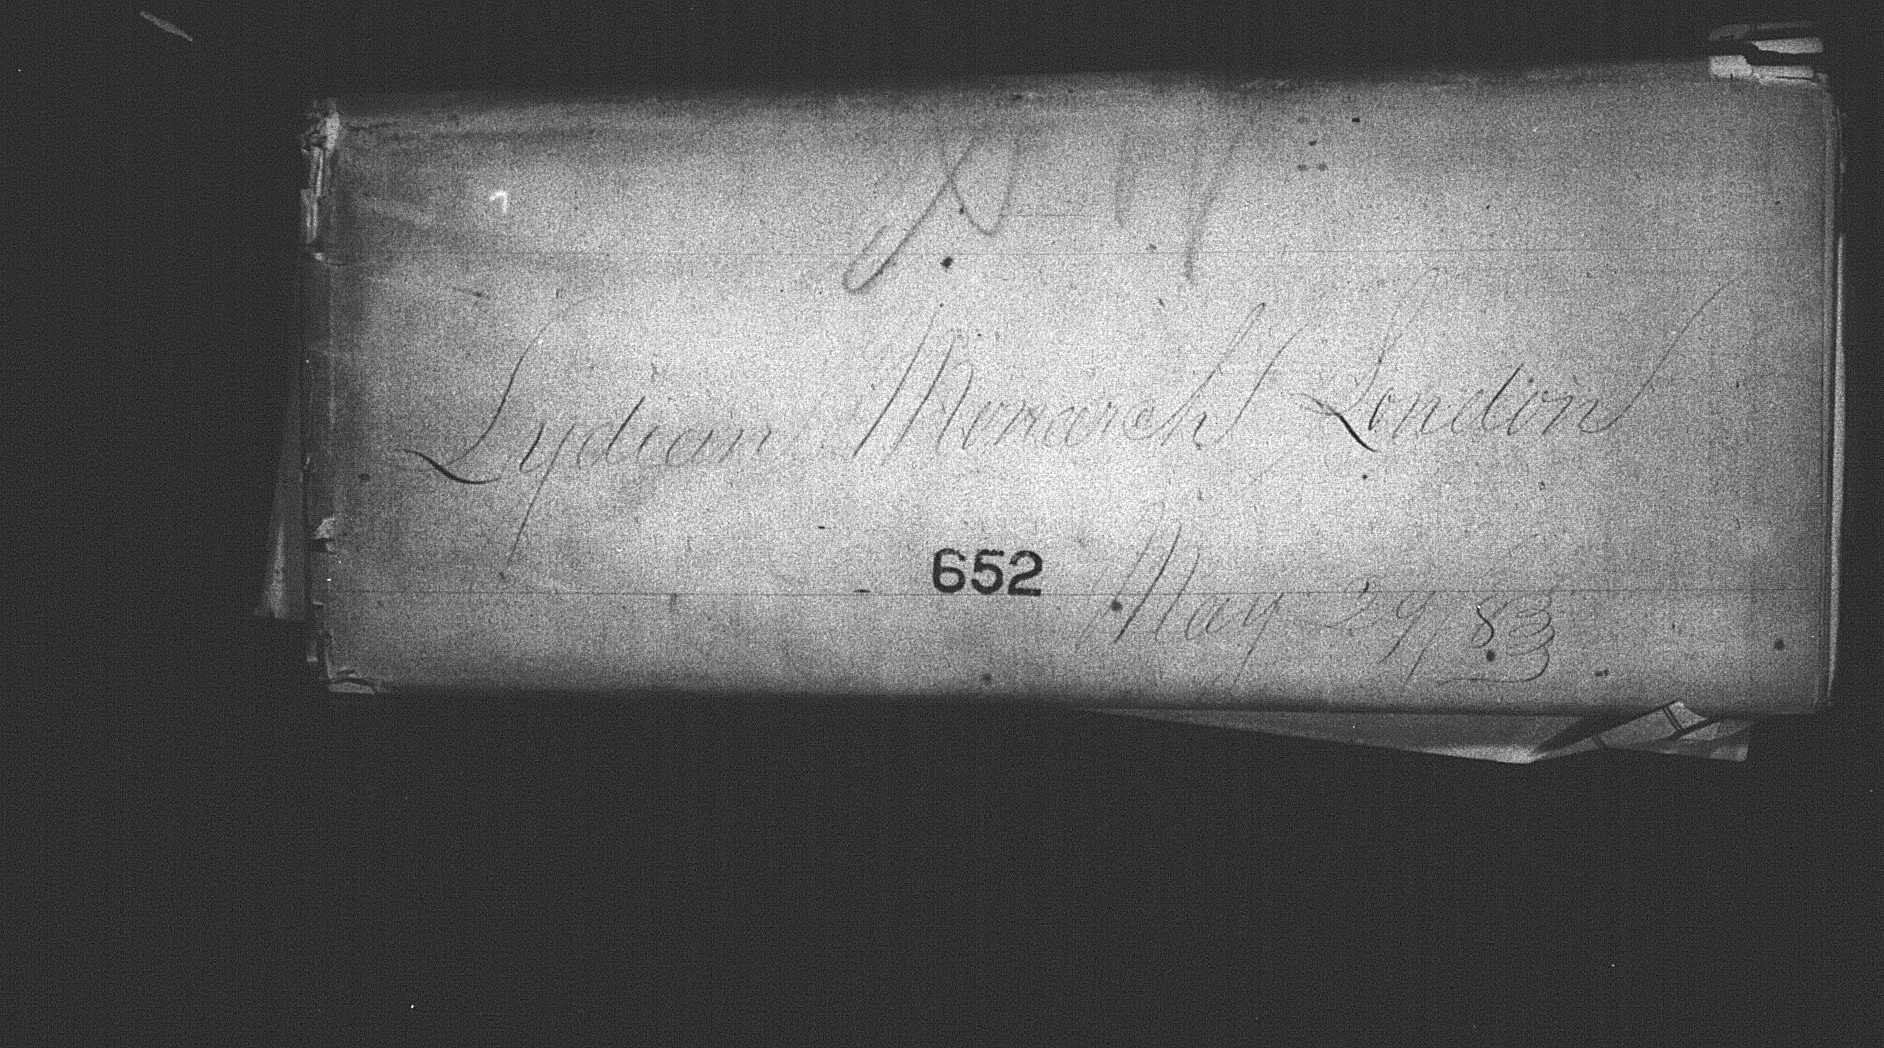 Lydian Monarch London
652
May 29, 83